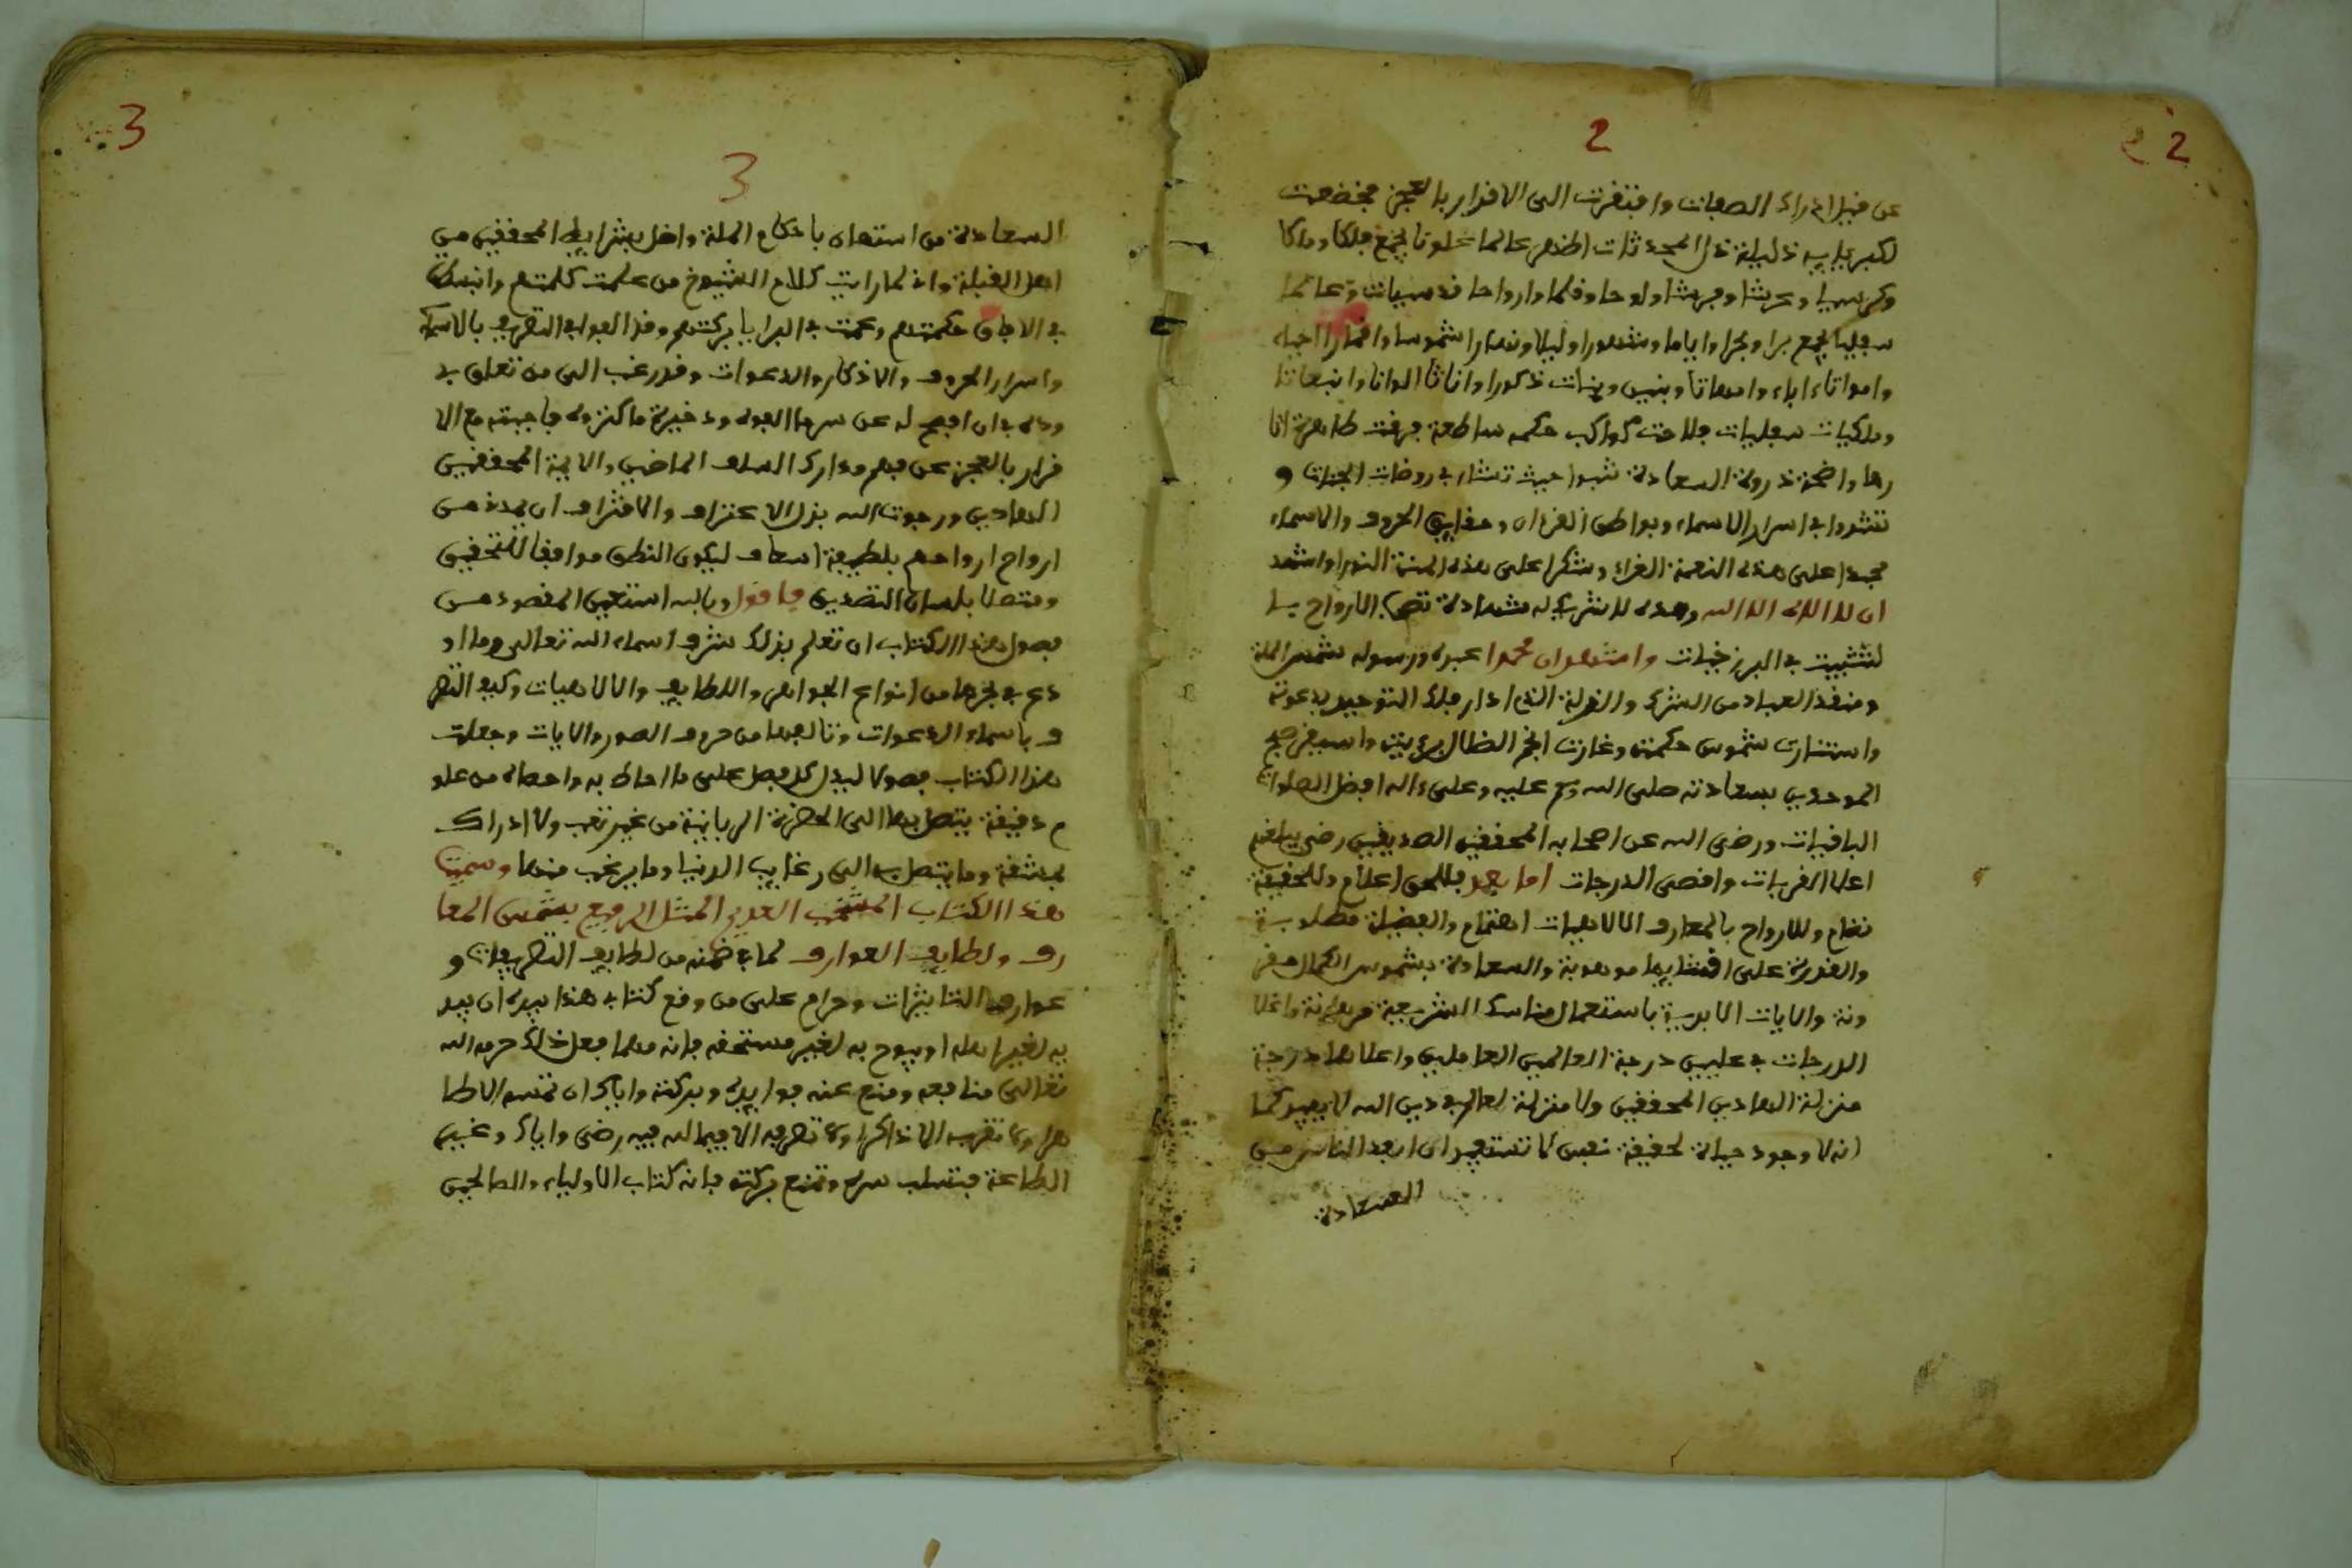 2
2
عن فيل ادراك الصفات وافتقرت الى الاقرار بالعجز فخضعت
لكبريايه ذليلة ذل المحدثات اظهر عالما علويا يجمع فلكا وملكا
وكرسيا وعرشا وفرشا ولوحا وقلما وارواحا قدسيات وعالما
سفليا يجمع برا وبحرا واياما وشهورا وليلا ونهارا شموسا واقمارا احياء
وامواتا ءاباء وامهاتا وبنين وبنات ذكورا واناثا الوانا وانبعاثا
وملكيات سفليات فلاحت كواكب حكمه ساطعة فرقت ظاهرة انا
رها واضحة ذروة السعادة تبوا حيث تشاء في روضات الجنات و
تشدوا في اسرار الاسماء وبواطن القرءان وحقايق الحروف والاسماء
حمدا على هذه النعمة الغراء وشكرا على هذه المنة النورا واشهد
ان لا اله الا الله وحده لا شريك له شهادة الارواح يـا
لتثبيت في البرزخيات واشهد ان محمدا عبده ورسوله شمس الملة
ومنقذ العباد من الشرك والذلة الذي ادار فلك التوحيد بدعوته
واستنارت شموس حكمته وغارت انجم الضلال برءيته واسفر صبح
الموحدين بسعادته صلى الله وسلم عليه وعلى ءاله افضل الصلوات
الباقيات ورضي الله عن اصحابه المحققين الصديقين رضى يبلغهم
اعلا القربات واقصى الدرجات اما بعد فللحق اعلام وللحقيقة
نظام وللارواح بالمعارف الالاهيات اهتمام والفضيلة مطلوبـة
والقدرة على اقتنايها موهوبة والسعادة بشموس الكمال مقر
ونة والايات الابدية باستعمال مناسك الشريعة مرهونة واعلا
الدرجات في عليين درجة العالمين العاملين واعلاها درجة
منزلة الهادين المحققين ولا منزلة لعالم في دين الله لا يفيد كما
انه لا وجود حياة لحقيقة نفس لا تستفيد ان ابعد الناس مـن
السعادة
3
3
السعادة من استهان باحكام الملة واخل بشرايط المحققين من
اهل القبلة واني لما رايت كلام الشيوخ من علمت كلمتهم وانبسطت
في الافاق حكمتهم وعمت في البرايا بركتهم وقد الفوا في التصريف بالاسماء
واسرار الحروف والاذكار والدعوات وقد رغب الي من تعلق بي
وده في ان افصح له عن سر ما الفوه وذخيرة ما كنزوه فاجبته مع الا
قرار بالعجز عن فهم مدارك السلف الماضين والايمة المحققين
الهادين ورجوت الله بذل الاعتراف والاقتراف ان يمدنـي مـن
ارواح ارواحهم بلطيفة اسعاف ليكون النطق موافقا للتحقيق
ومتصلا بلسان التصديق فاقول وبالله استعين المقصود مـن
فصول هذا الكتاب ان تعلم بذلك شرف اسماء الله تعالى وما او
دع في بحرها من انواع الجواهر واللطايف والالاهيات وكيف التصر
ف باسماء الدعوات وتاليفها من حروف الصور والايات وجعلت
هذا الكتاب فصولا ليدل كل فصل على ما احاط به واحصاه من علو
م دقيقة يتصل بها الى الحضرة الربانية من غير تعب ولا ادراك
بمشقة وما يتصل به الى رغايب الدنيا وما يرغب منها وسميت
هذا الكتاب المنتخب العديم المثل الرفيع بشمس المعا
رف ولطايف العوارف لما في ضمنه من لطايف التصريفات و
عوارف التاثيرات وحرام على من وقع كتابي هذا بيده ان يبد
به لغير اهله او يبوح به لغير مستحقه فانه مهما فعل ذلك حرمه الله
تعالى منافعه ومنع عنه فوايده وبركته واياك ان تمسه الا طا
هرا ولا تقربه الا ذاكرا ولا تصرفه الا فيما لله فيه رضى واياك وغيـر
الطاعة فتسلب سره وتمنع بركته فانه كتاب الاولياء والصالحين